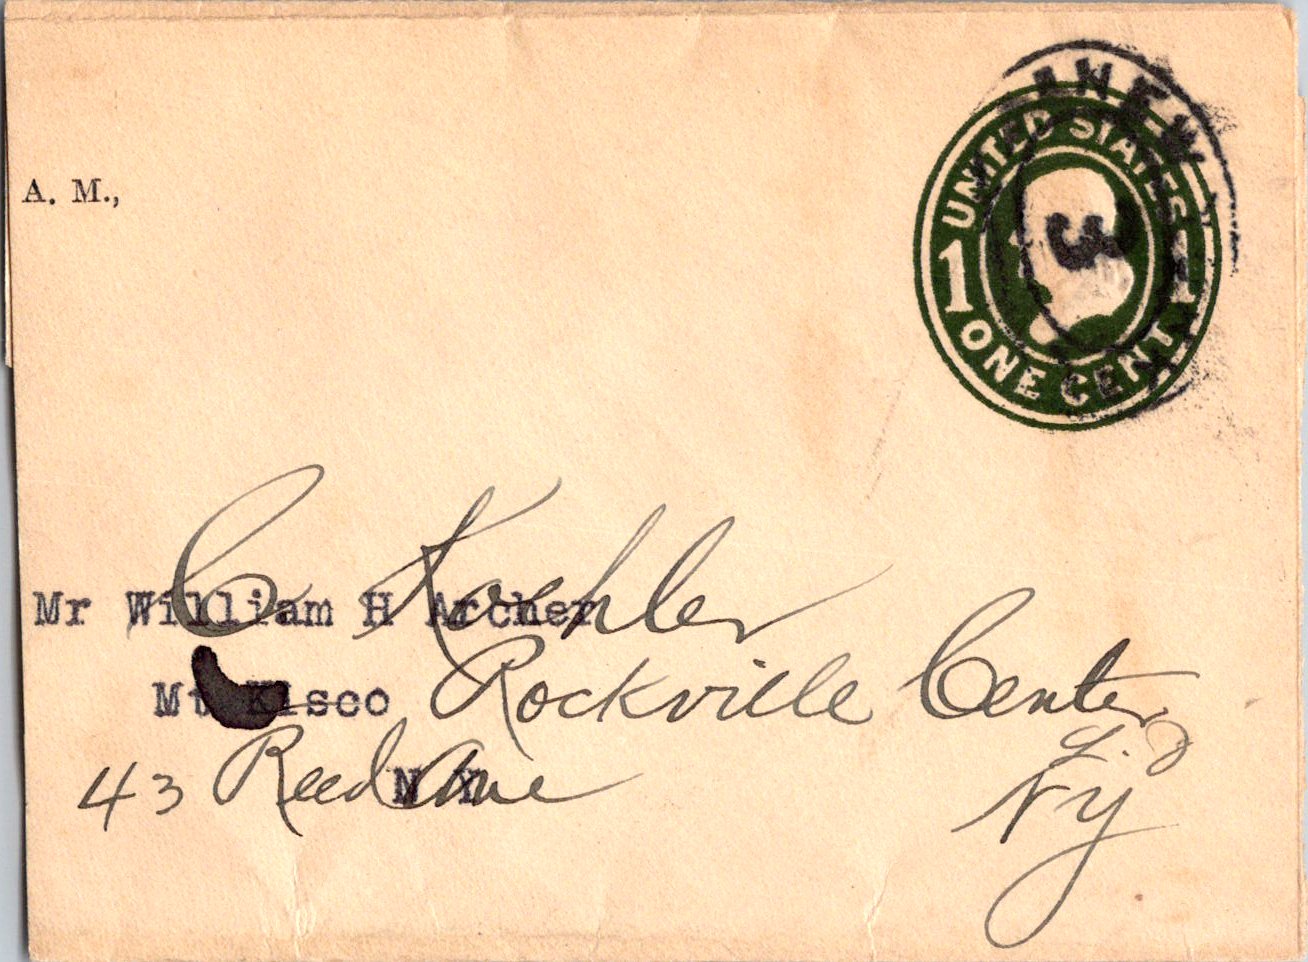 A. M.,
UNITED STATES
1 1
ONE CENT
3
C Koehler
Mr William H Archer
Mt Kisco
Rockville Center
L. I
43 Reed Ave
N Y
N Y